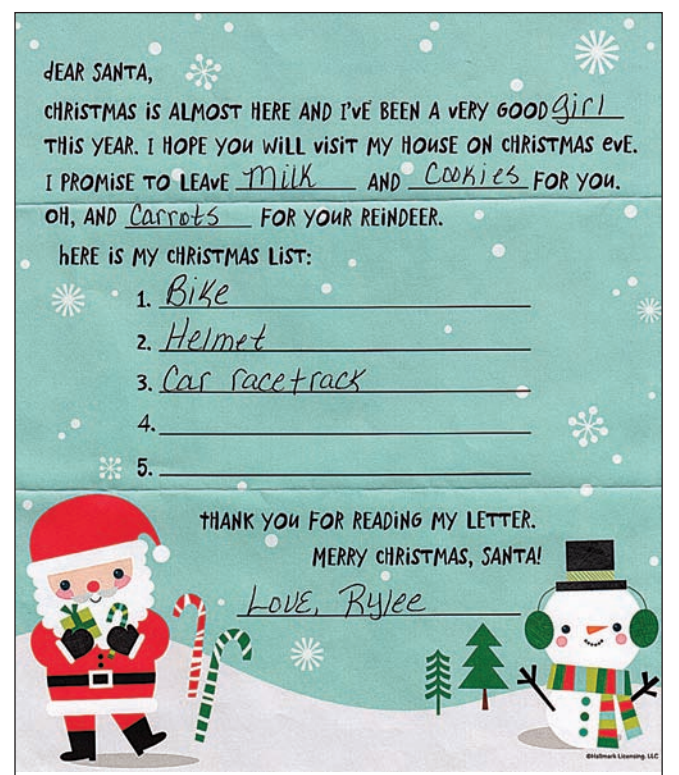 dEAR SANTA,
CHRISTMAS IS ALMOST HERE AND I'VE BEEN A VERY GOOD girl
THIS YEAR. I HOPE YOU WILL VISIT MY HOUSE ON CHRISTMAS EVE.
I PROMISE TO LEAVE Milk AND Cookies FOR YOU.
OH, AND Carrots FOR YOUR REINDEER.
hERE IS MY CHRISTMAS LIST:
1. Bike
2. Helmet
3. Car racetrack
4.
5.
tHANK YOU FOR READING MY LETTER.
MERRY CHRISTMAS, SANTA!
Love, Rylee
©Hallmark Licensing, LLC